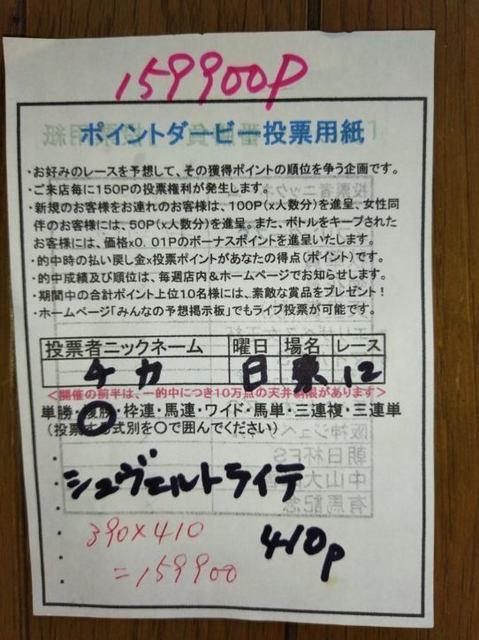 159900P
ポイントダービー投票用紙
・お好みのレースを予想して、その獲得ポイントの順位を争う企画です。
・ご来店毎に150Pの投票権利が発生します。
・新規のお客様をお連れのお客様は、100P(x人数分)を進呈、女性同
伴のお客様には、50P(x人数分)を進呈。また、ボトルをキープされた
お客様には、価格x0.01Pのボーナスポイントを進呈いたします。
・的中時の払い戻し金x投票ポイントがあなたの得点(ポイント)です。
・的中成績及び順位は、毎週店内&ホームページでお知らせします。
・期間中の合計ポイント上位10名様には、素敵な賞品をプレゼント!
・ホームページ「みんなの予想掲示板」でもライブ投票が可能です。
投票者ニックネーム 曜日 場名 レース
チカ 日 東 12
<開催の前半は、一的中につき10万点の天井制限があります>
単勝・複勝・枠連・馬連・ワイド・馬単・三連複・三連単
(投票する式別を〇で囲んでください)
シュヴェルトライテ
390×410 410p
=159900